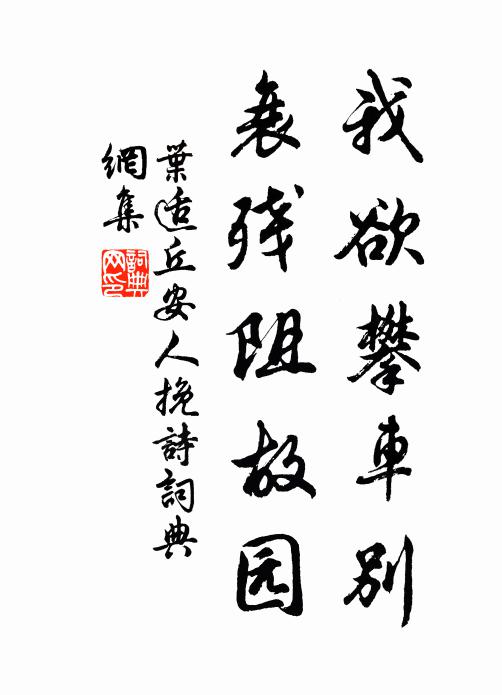 我欲攀車别
衰残阻故园
葉适丘安人挽詩詞典
網集
詞典
网印